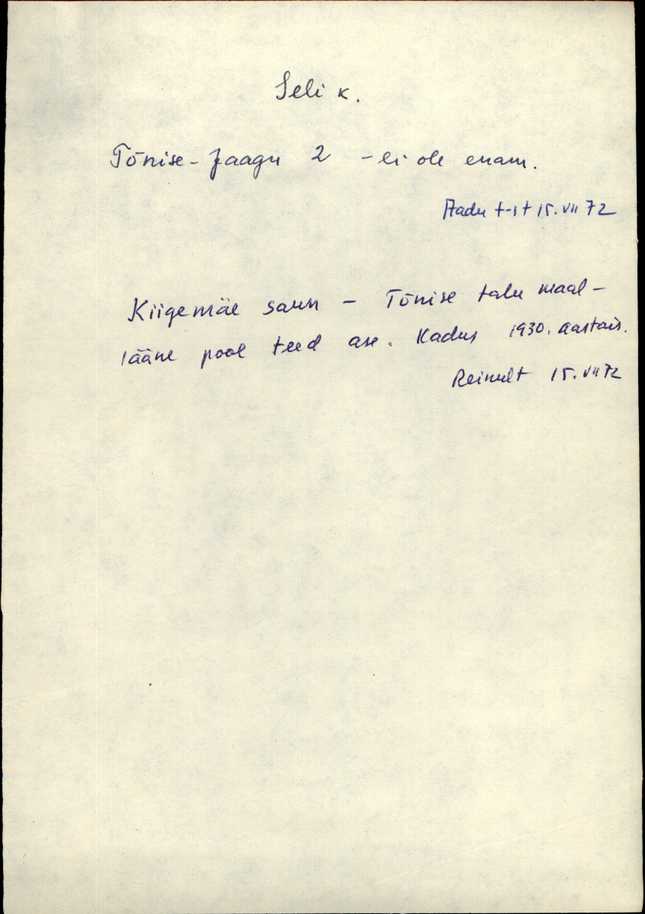 Seli k.
Tõnise-Jaagu 2 - ei ole enam.
Aadu t-st 15. VII 72
Kiigemäe saun - Tõnise talu maal -
lääne pool teed ase. Kadus 1930. aastais.
Reinult 15. VII 72